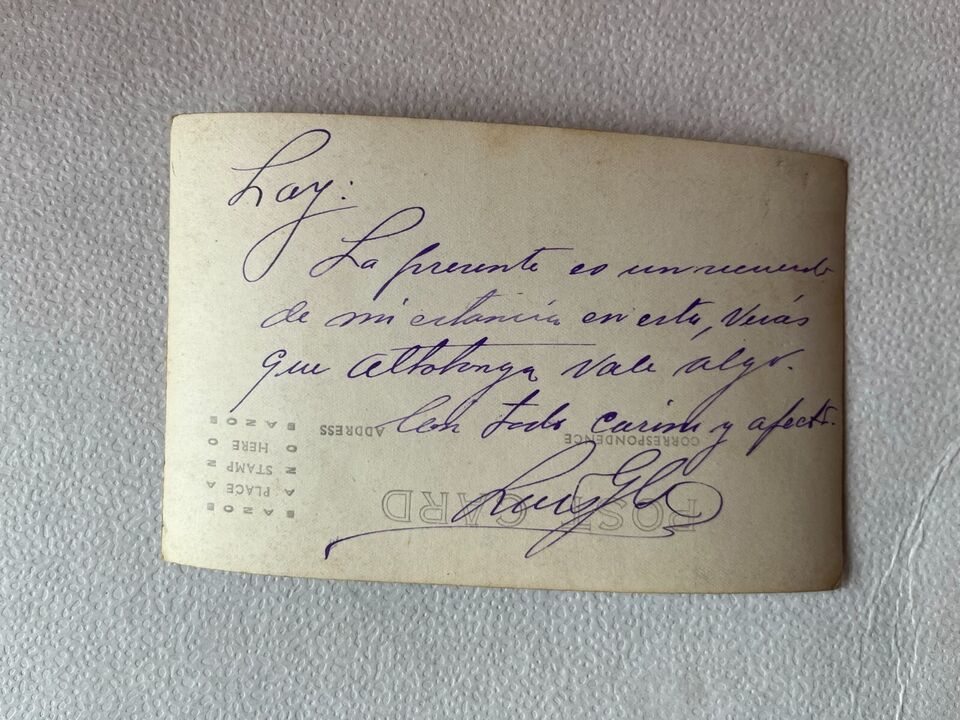 Lay:
La presente es un recuerdo
de mi estancia en esta, Verás
que Altotonga vale algo.
Con todo cariño y afecto.
Luis
ADDRESS
CORRESPONDENCE
POST CARD
AZONE
PLACE A
STAMP
HERE
AZONE